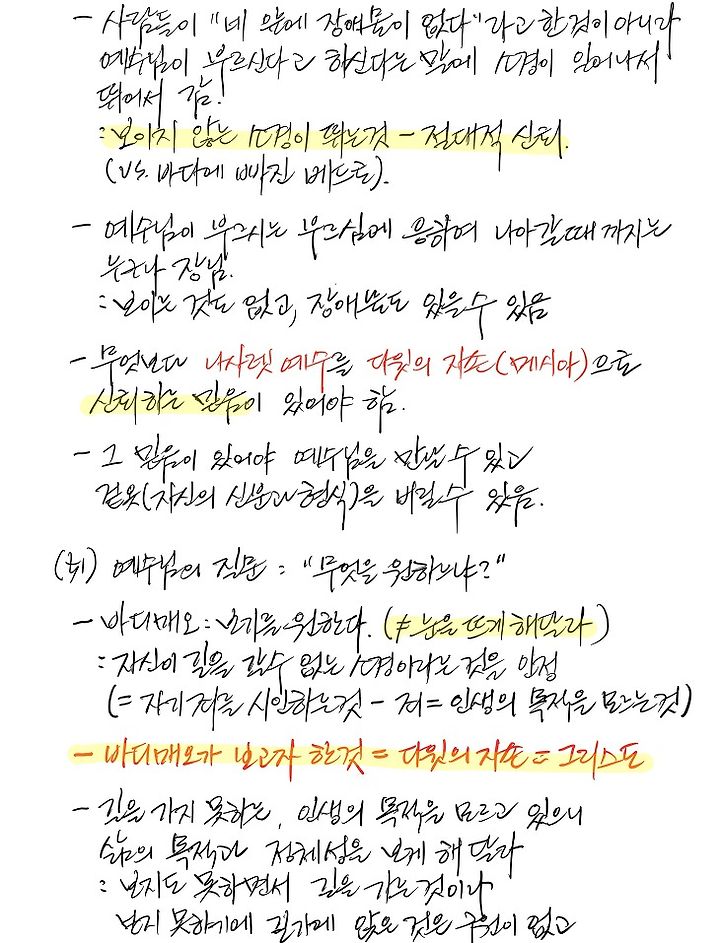 - 사람들이 "네 앞에 장애물이 없다"라고 한것이 아니라
예수님이 부르신다고 하신다는 말에 소경이 일어나서
뛰어서 감!
: 보이지 않는 소경이 뛰는것 - 절대적 신뢰.
(vs. 바다에 빠진 베드로).
- 예수님이 부르시는 부르심에 응하여 나아갈때 까지는
누구나 장님.
: 보이는 것도 없고, 장애물도 있을수 있음
- 무엇보다 나사렛 예수를 다윗의 자손(메시아)으로
신뢰하는 믿음이 있어야 함.
- 그 믿음이 있어야 예수님을 만날수 있고
겉옷(자신의 신분과 형식)을 버릴수 있음.
예수님의 질문 : "무엇을 원하느냐?"
- 바디매오 : 보기를 원한다. (≠ 눈을 뜨게 해달라)
: 자신이 길을 갈수 없는 소경이라는 것을 인정
(= 자기 죄를 시인하는것 - 죄 = 인생의 목적을 모르는것)
- 바디매오가 보고자 한것 = 다윗의 자손 = 그리스도
- 길을 가지 못하는, 인생의 목적을 모르고 있으니
삶의 목적과 정체성을 보게 해 달라
: 보지도 못하면서 길을 가는것이나
보지 못하기에 길가에 앉은 것은 구원이 없고